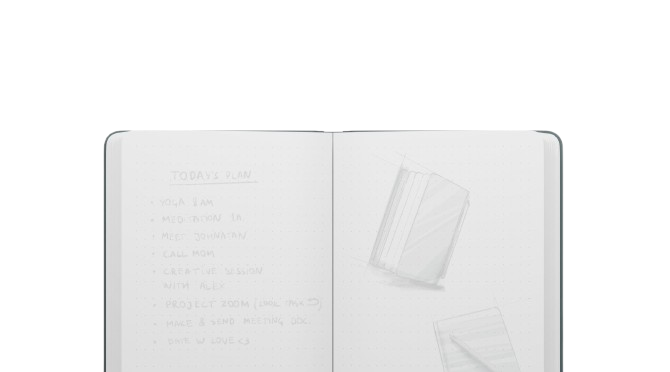 TODAY'S PLAN
• YOGA 8AM
• MEDITATION
• MEET JOHNATAN
• CALL MOM
• CREATIVE SESSION
WITH ALEX
• PROJECT ROOM
• MAKE & SEND MEETING DOC